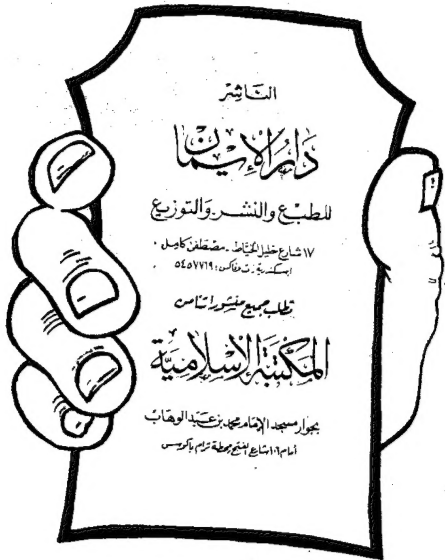 الناشر
دار الإيمان
للطبع والنشر والتوزيع
١٧ شارع خليل الخياط - مصطفى كامل -
إسكندرية: ت وفاكس: ٥٤٥٧٧٦٩
تطلب جميع منشوراتنا من
المكتبة الإسلامية
بجوار مسجد الإمام محمد بن عبد الوهاب
أمام ١٠٦ شارع الفتح محطة ترام باكوس